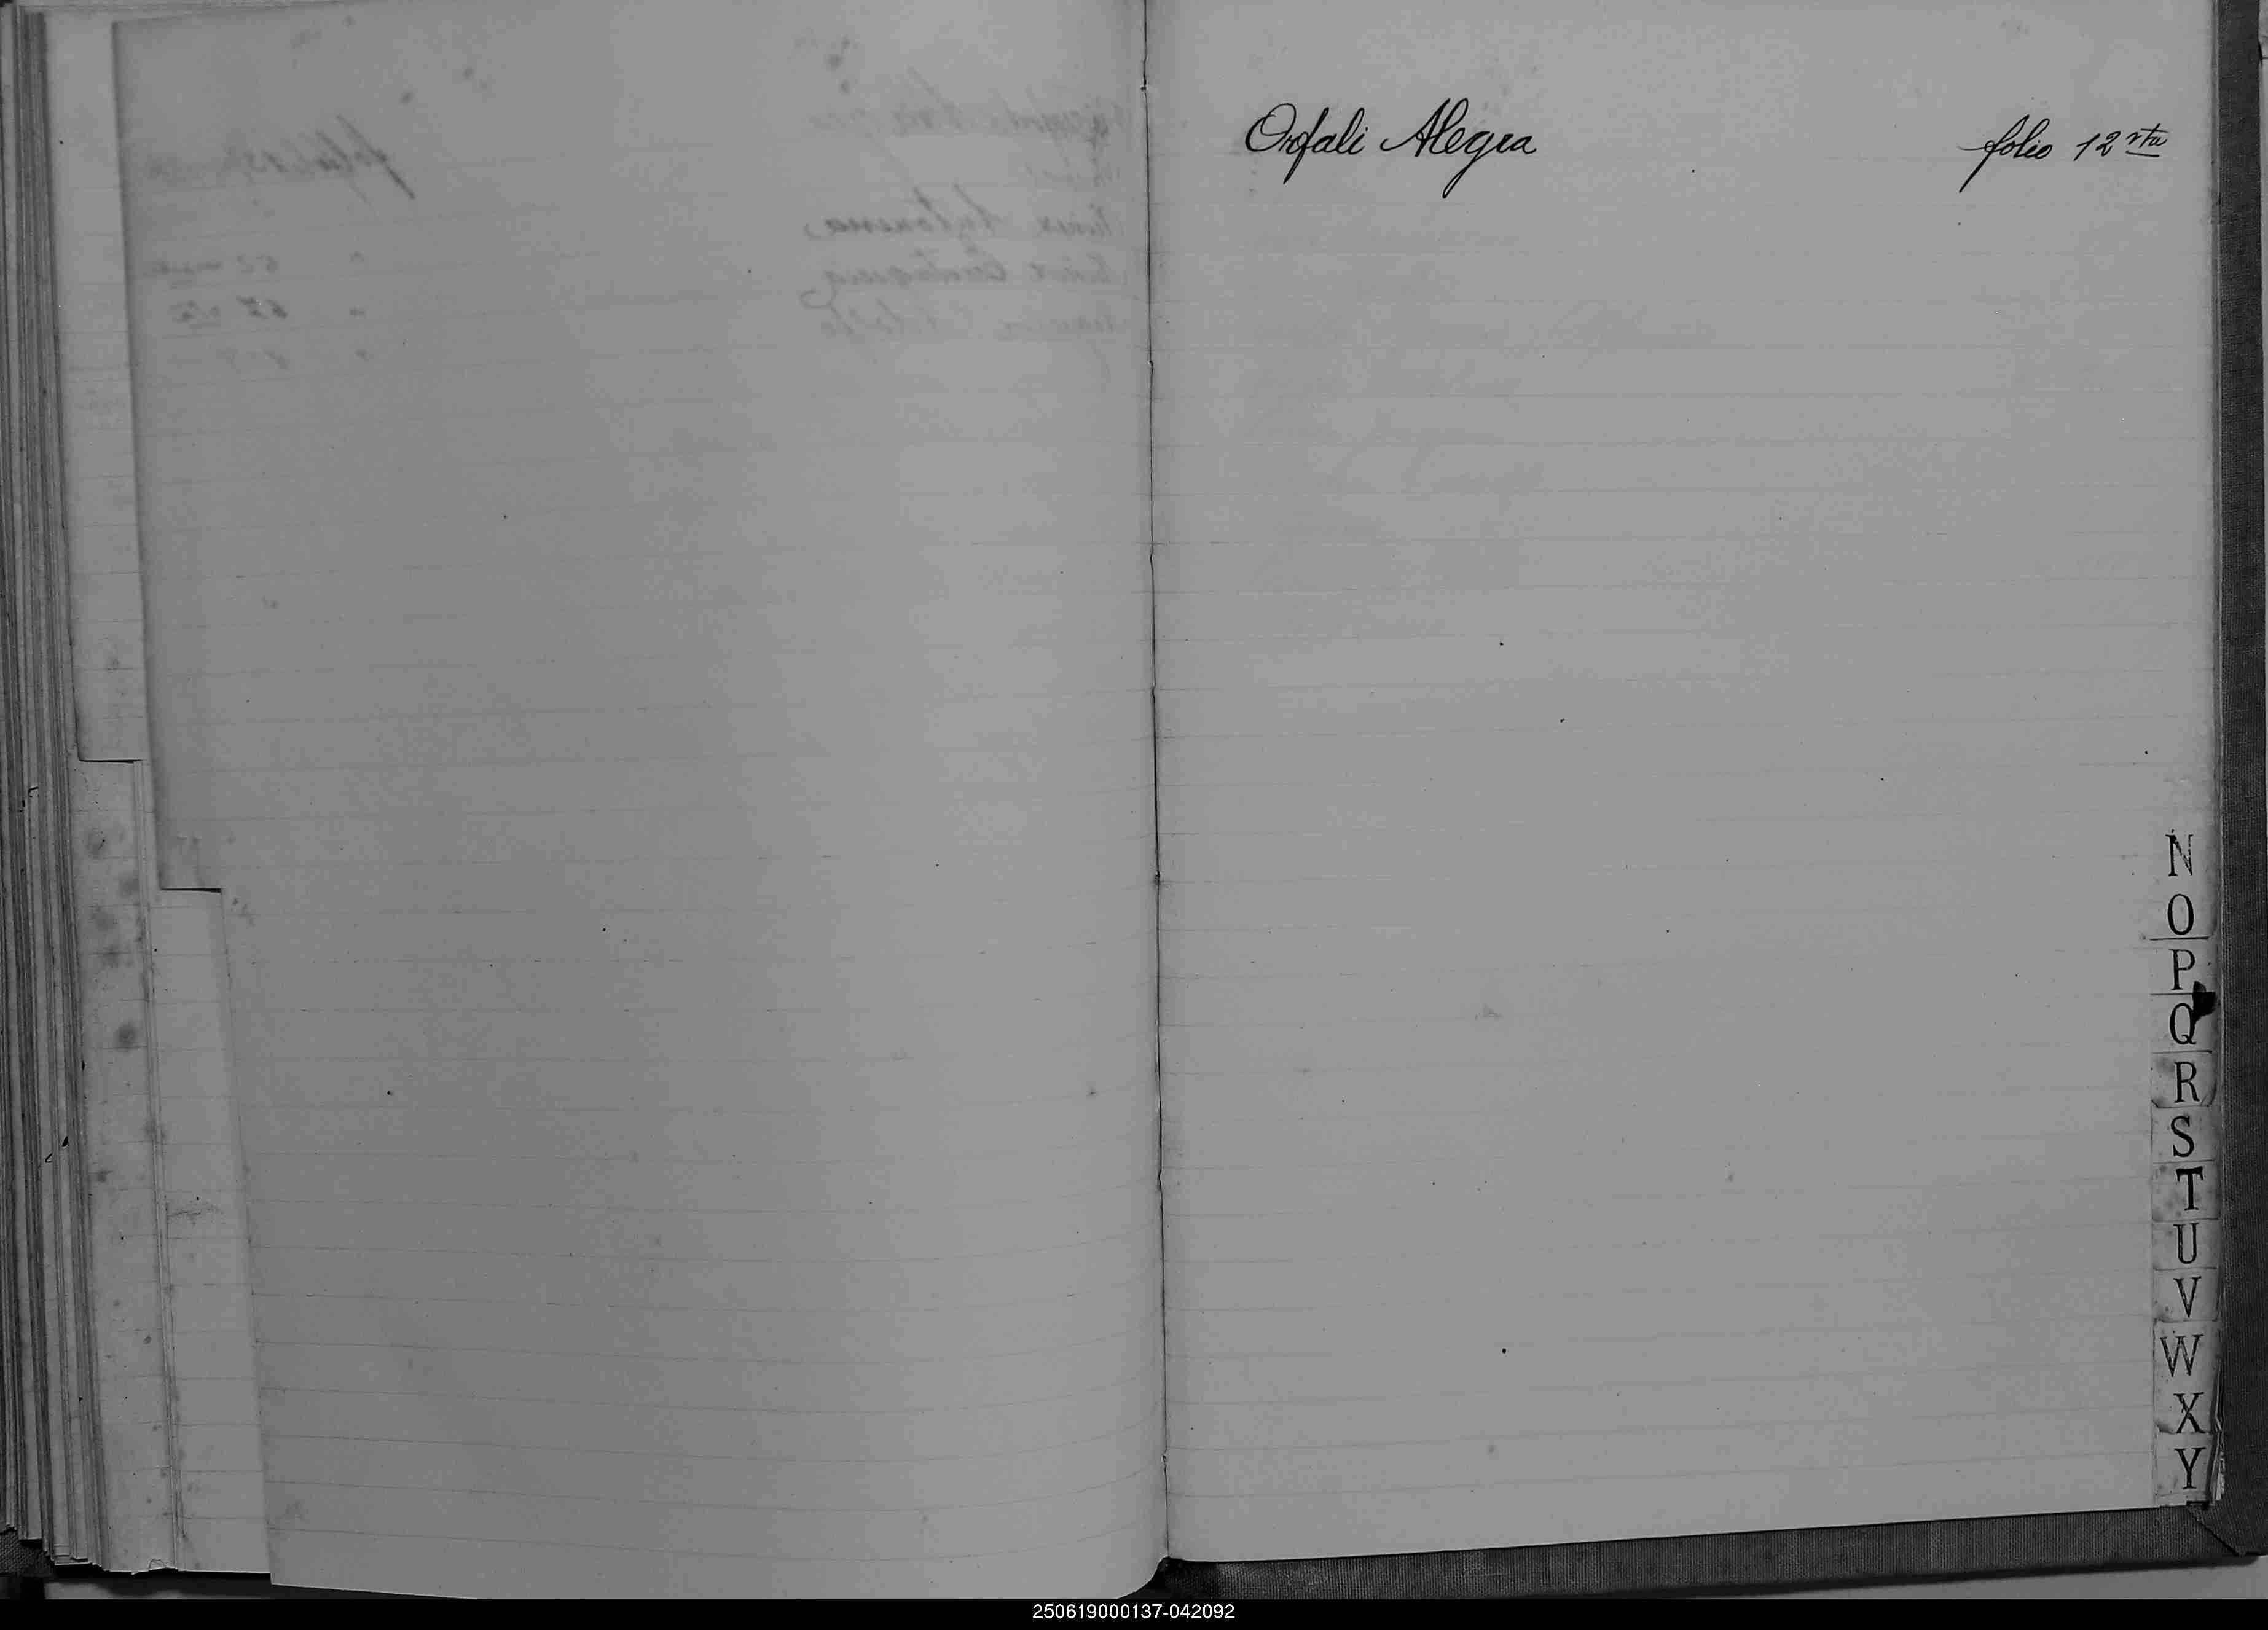 Orfali Alegra folio 12 vta
N
O
P
Q
R
S
T
U
V
W
X
Y
250619000137-042092